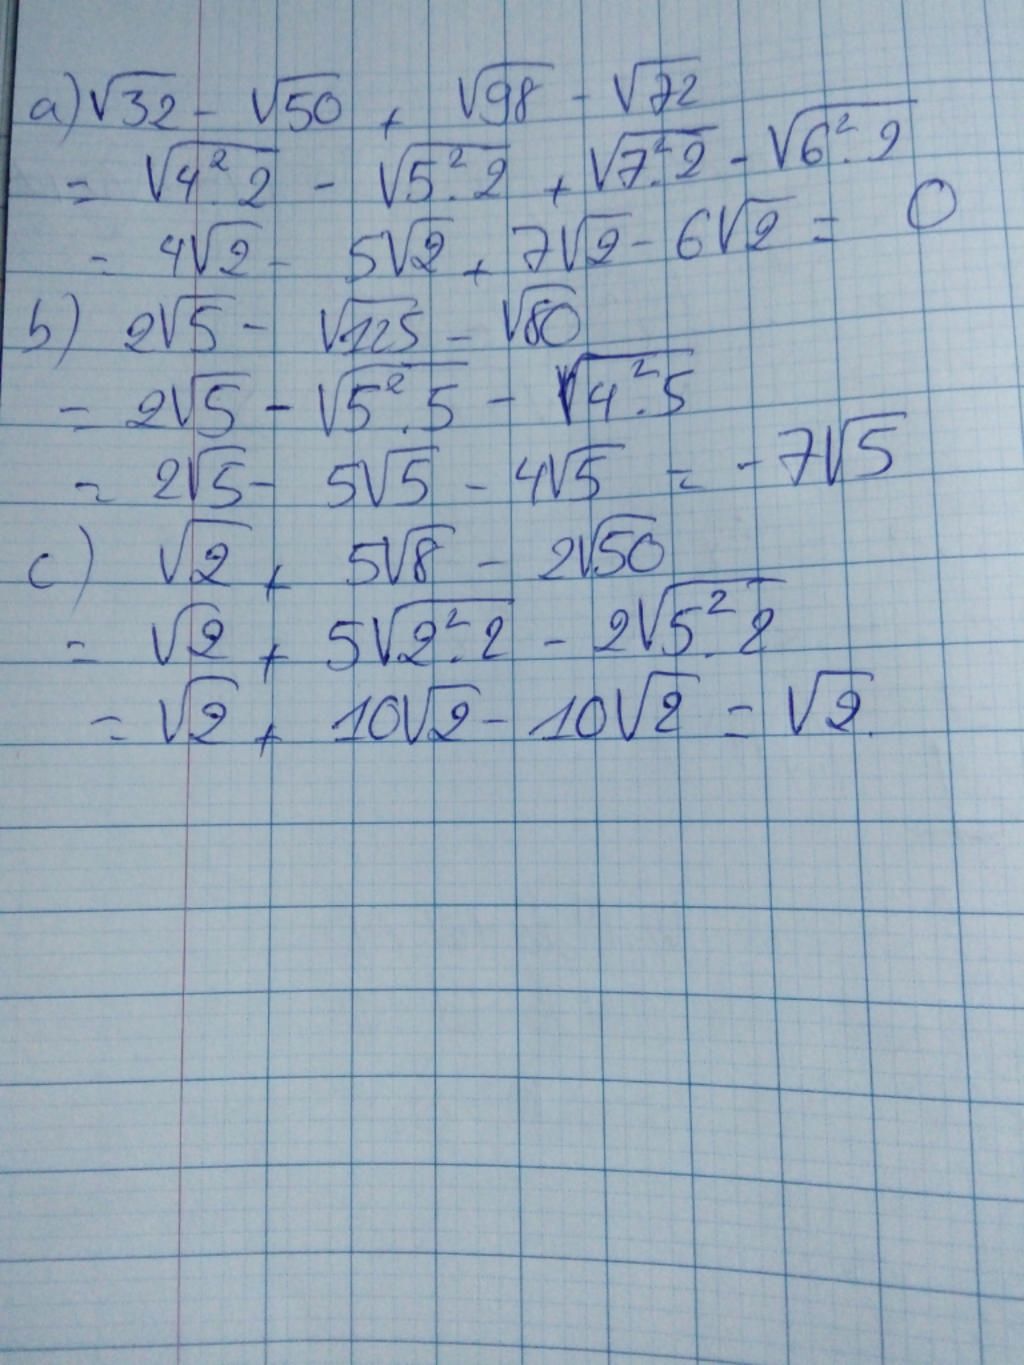 a) √32 - √50 + √98 - √72
= √4².2 - √5².2 + √7².2 - √6².2
= 4√2 - 5√2 + 7√2 - 6√2 = 0
b) 2√5 - √125 - √80
= 2√5 - √5².5 - √4².5
= 2√5 - 5√5 - 4√5 = -7√5
c) √2 + 5√8 - 2√50
= √2 + 5√2².2 - 2√5².2
= √2 + 10√2 - 10√2 = √2.